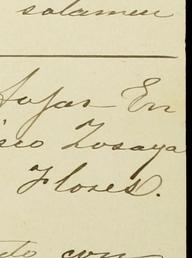 solamen
Sofas En
isco Zosaya
Flores.
do con